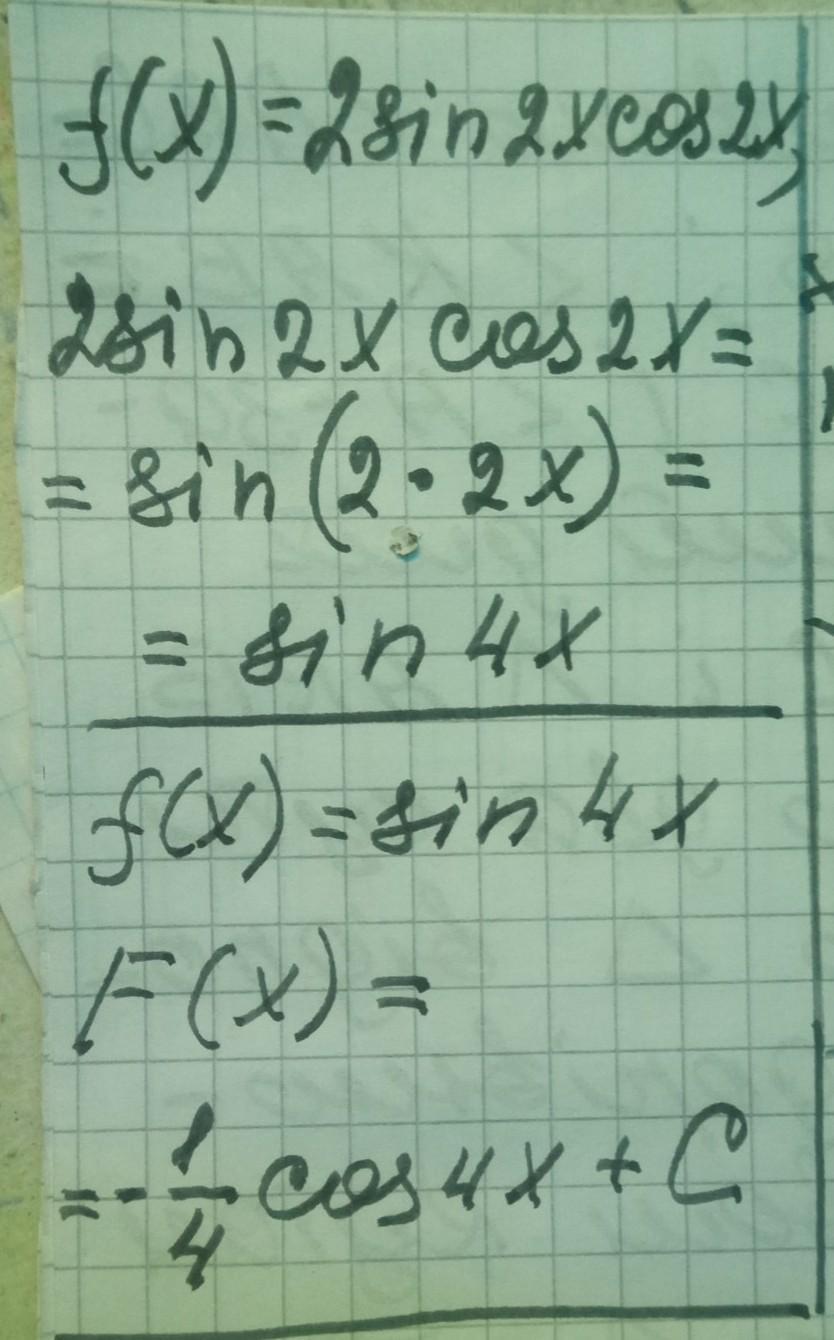 f(x)=2sin2xcos2x,
2sin2x cos2x=
= sin(2·2x) =
= sin 4x
f(x)=sin 4x
F(x)=
=-1/4 cos4x + C